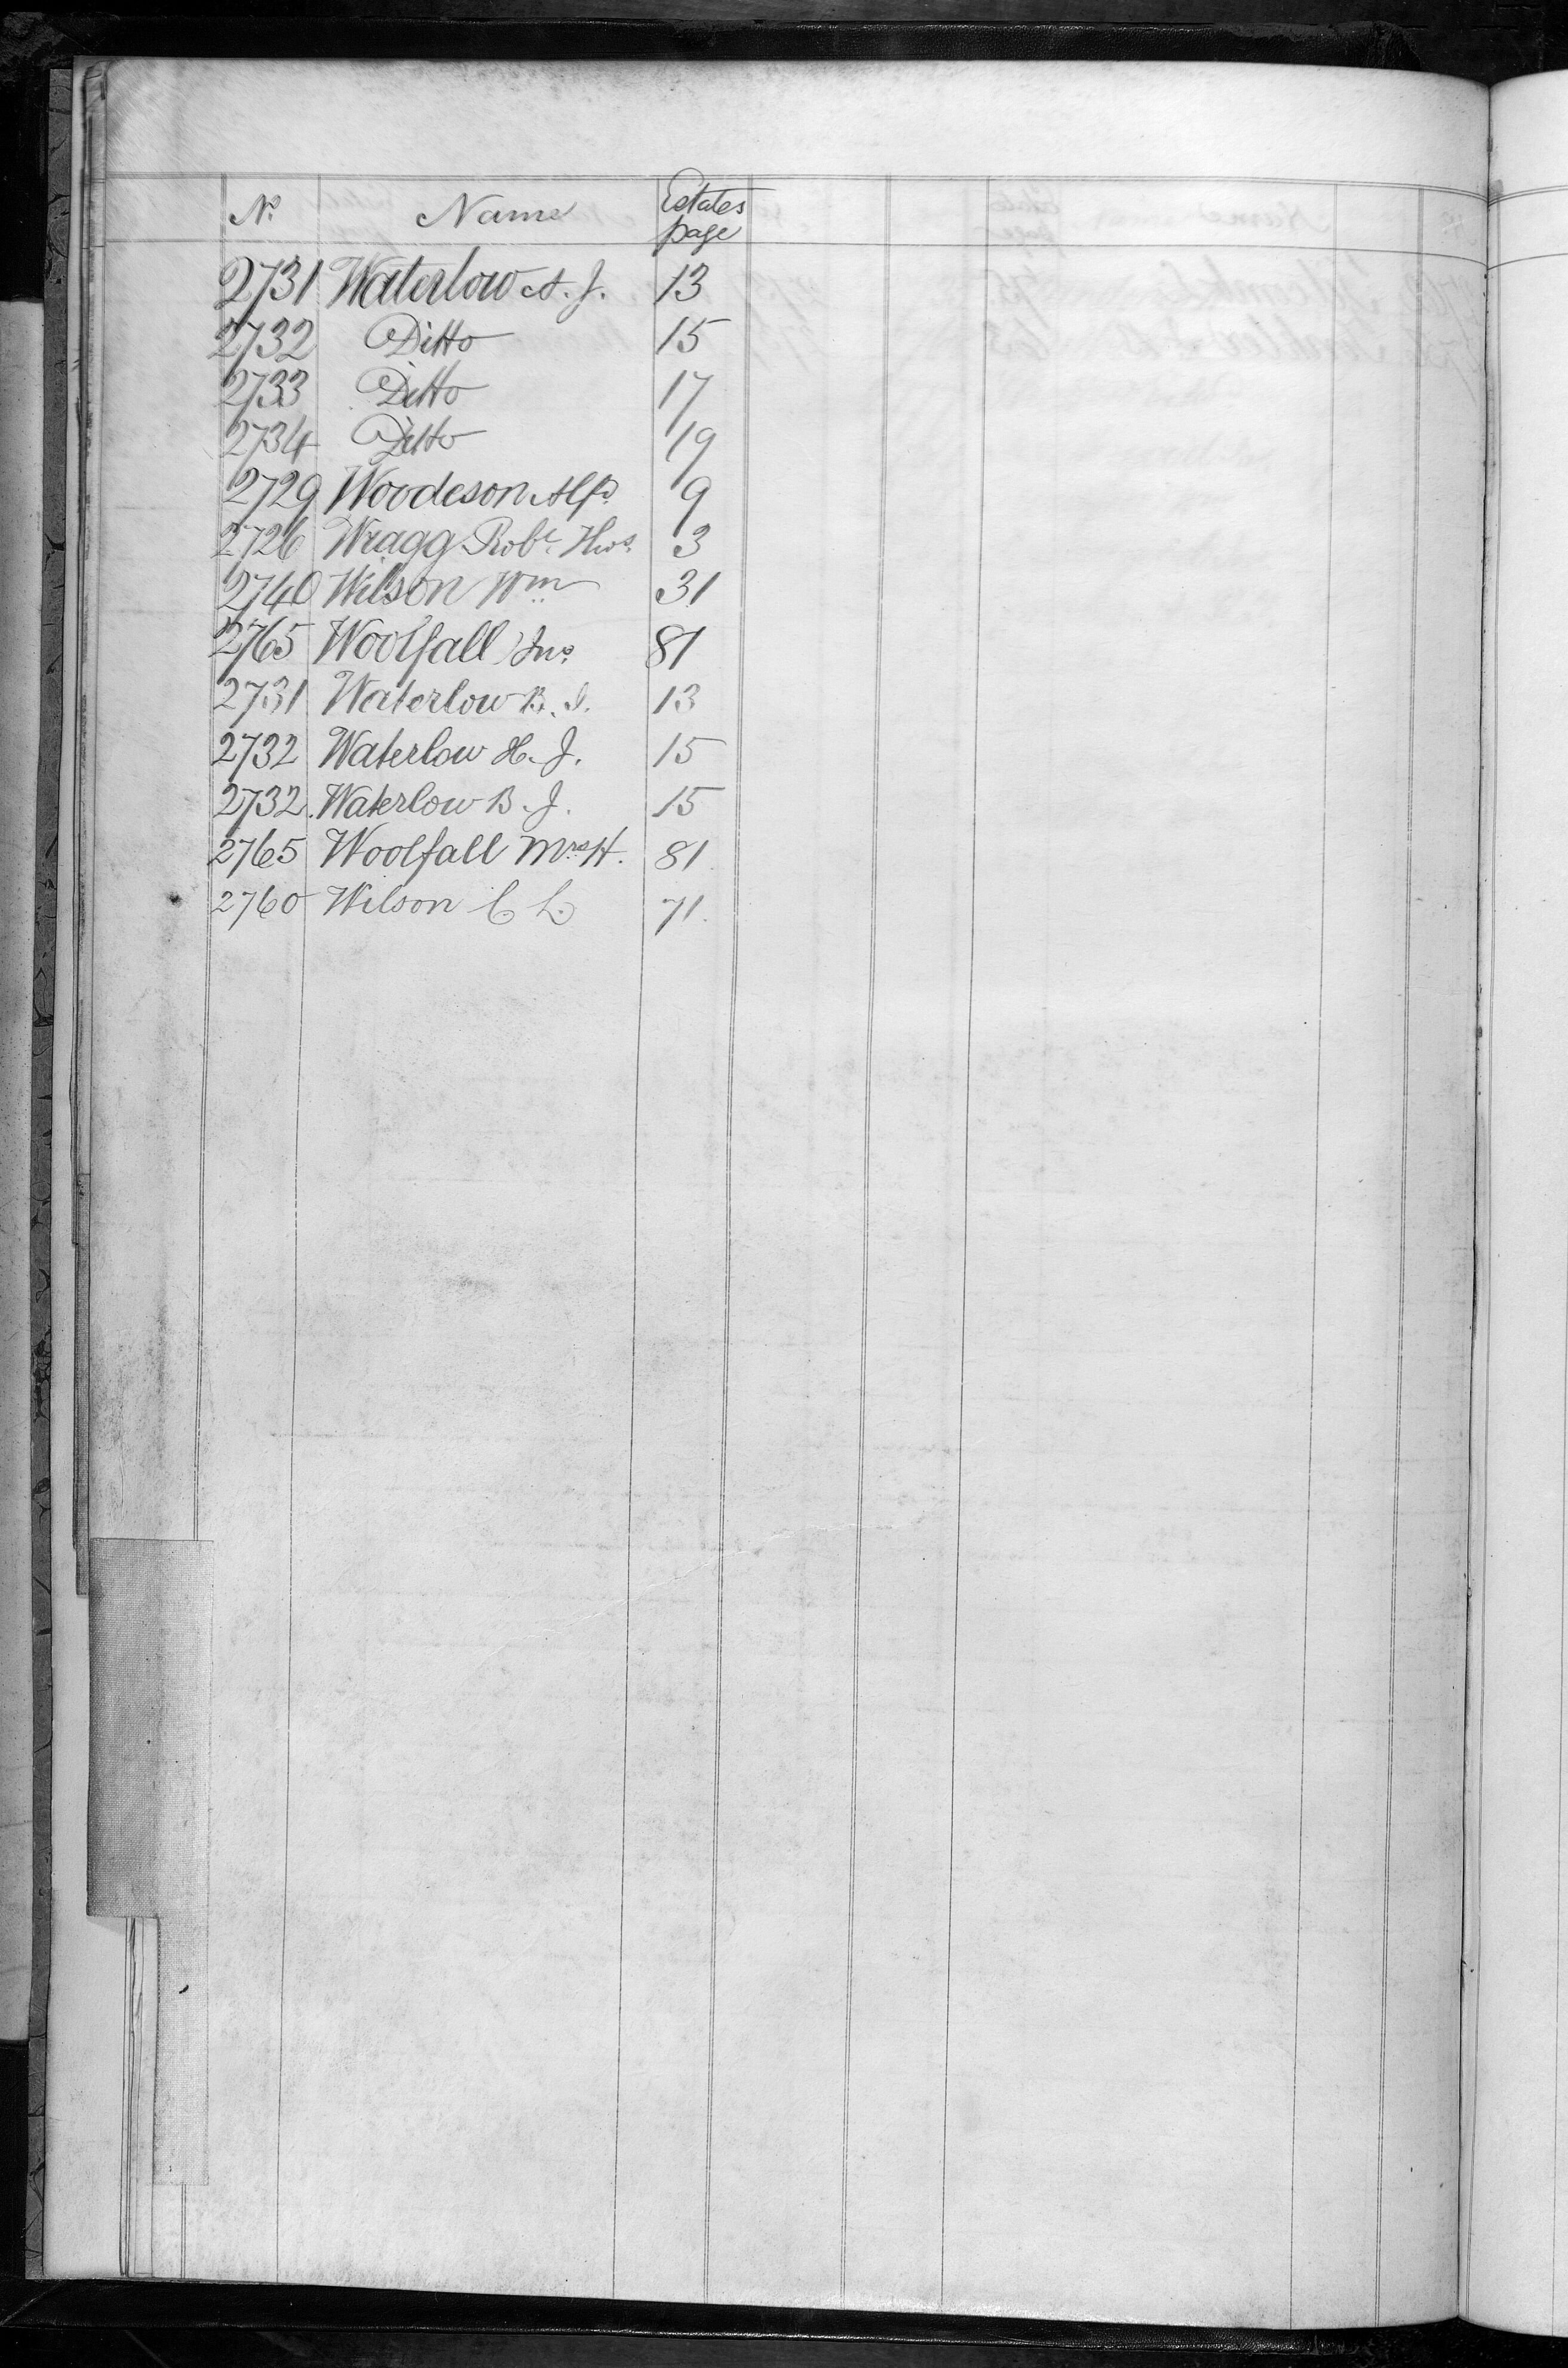 No Name Estates page
2731 Waterlow A. J. 13
2732 Ditto 15
2733 Ditto 17
2734 Ditto 19
2729 Woodeson Alfd 9
2726 Wragg Robt 3
2740 Wilson Wm 31
2765 Woolfall Jno. 81
2731 Waterlow B. J. 13
2732 Waterlow H. J. 15
2732. Waterlow B. J. 15
2765 Woolfall Mrs H. 81.
2760 Wilson C L. 71.